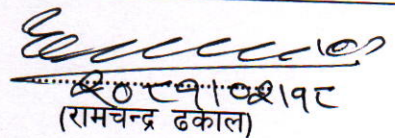 २०८१।०२।१८
(रामचन्द्र ढकाल)